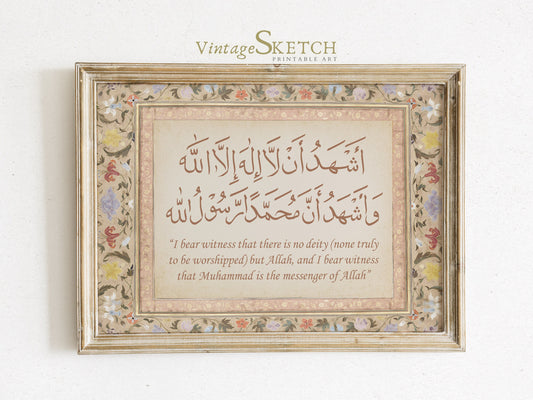 VintageSKETCH
PRINTABLE ART
أَشْهَدُ أَنْ لَّا إِلٰهَ إِلَّا اللّٰه
وَ أَشْهَدُ أَنَّ مُحَمَّدًا رَّسُوْلُ اللّٰه
“I bear witness that there is no deity (none truly
to be worshipped) but Allah, and I bear witness
that Muhammad is the messenger of Allah”